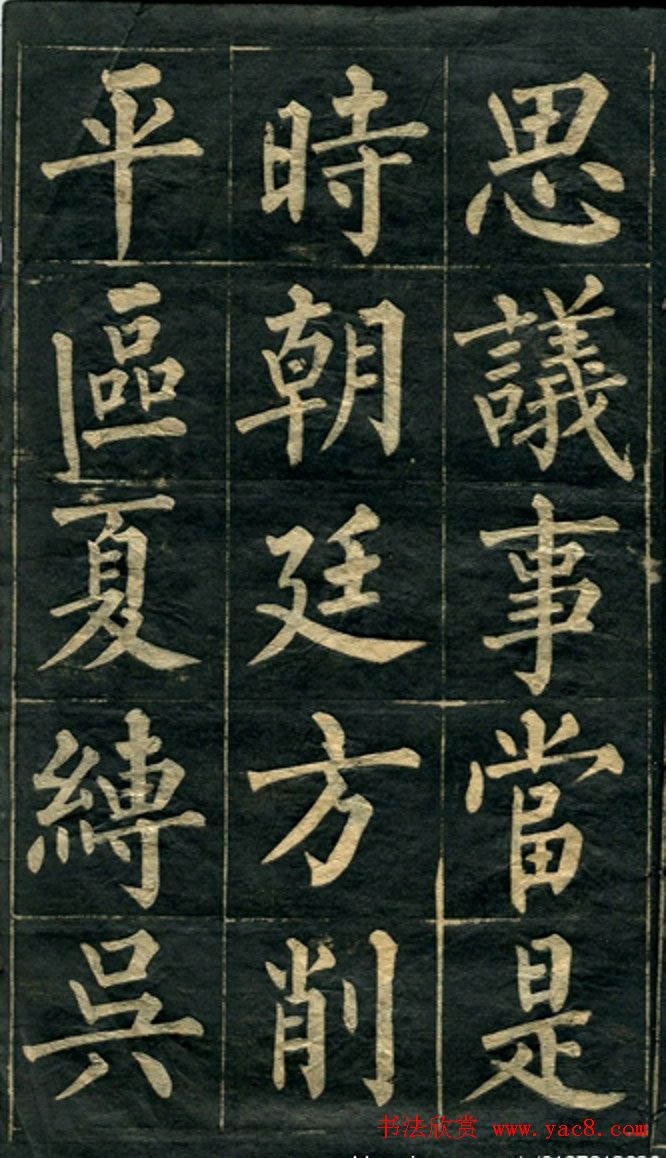 思議事當是
時朝廷方削
平區夏縛吳
书法欣赏 www.yac8.com